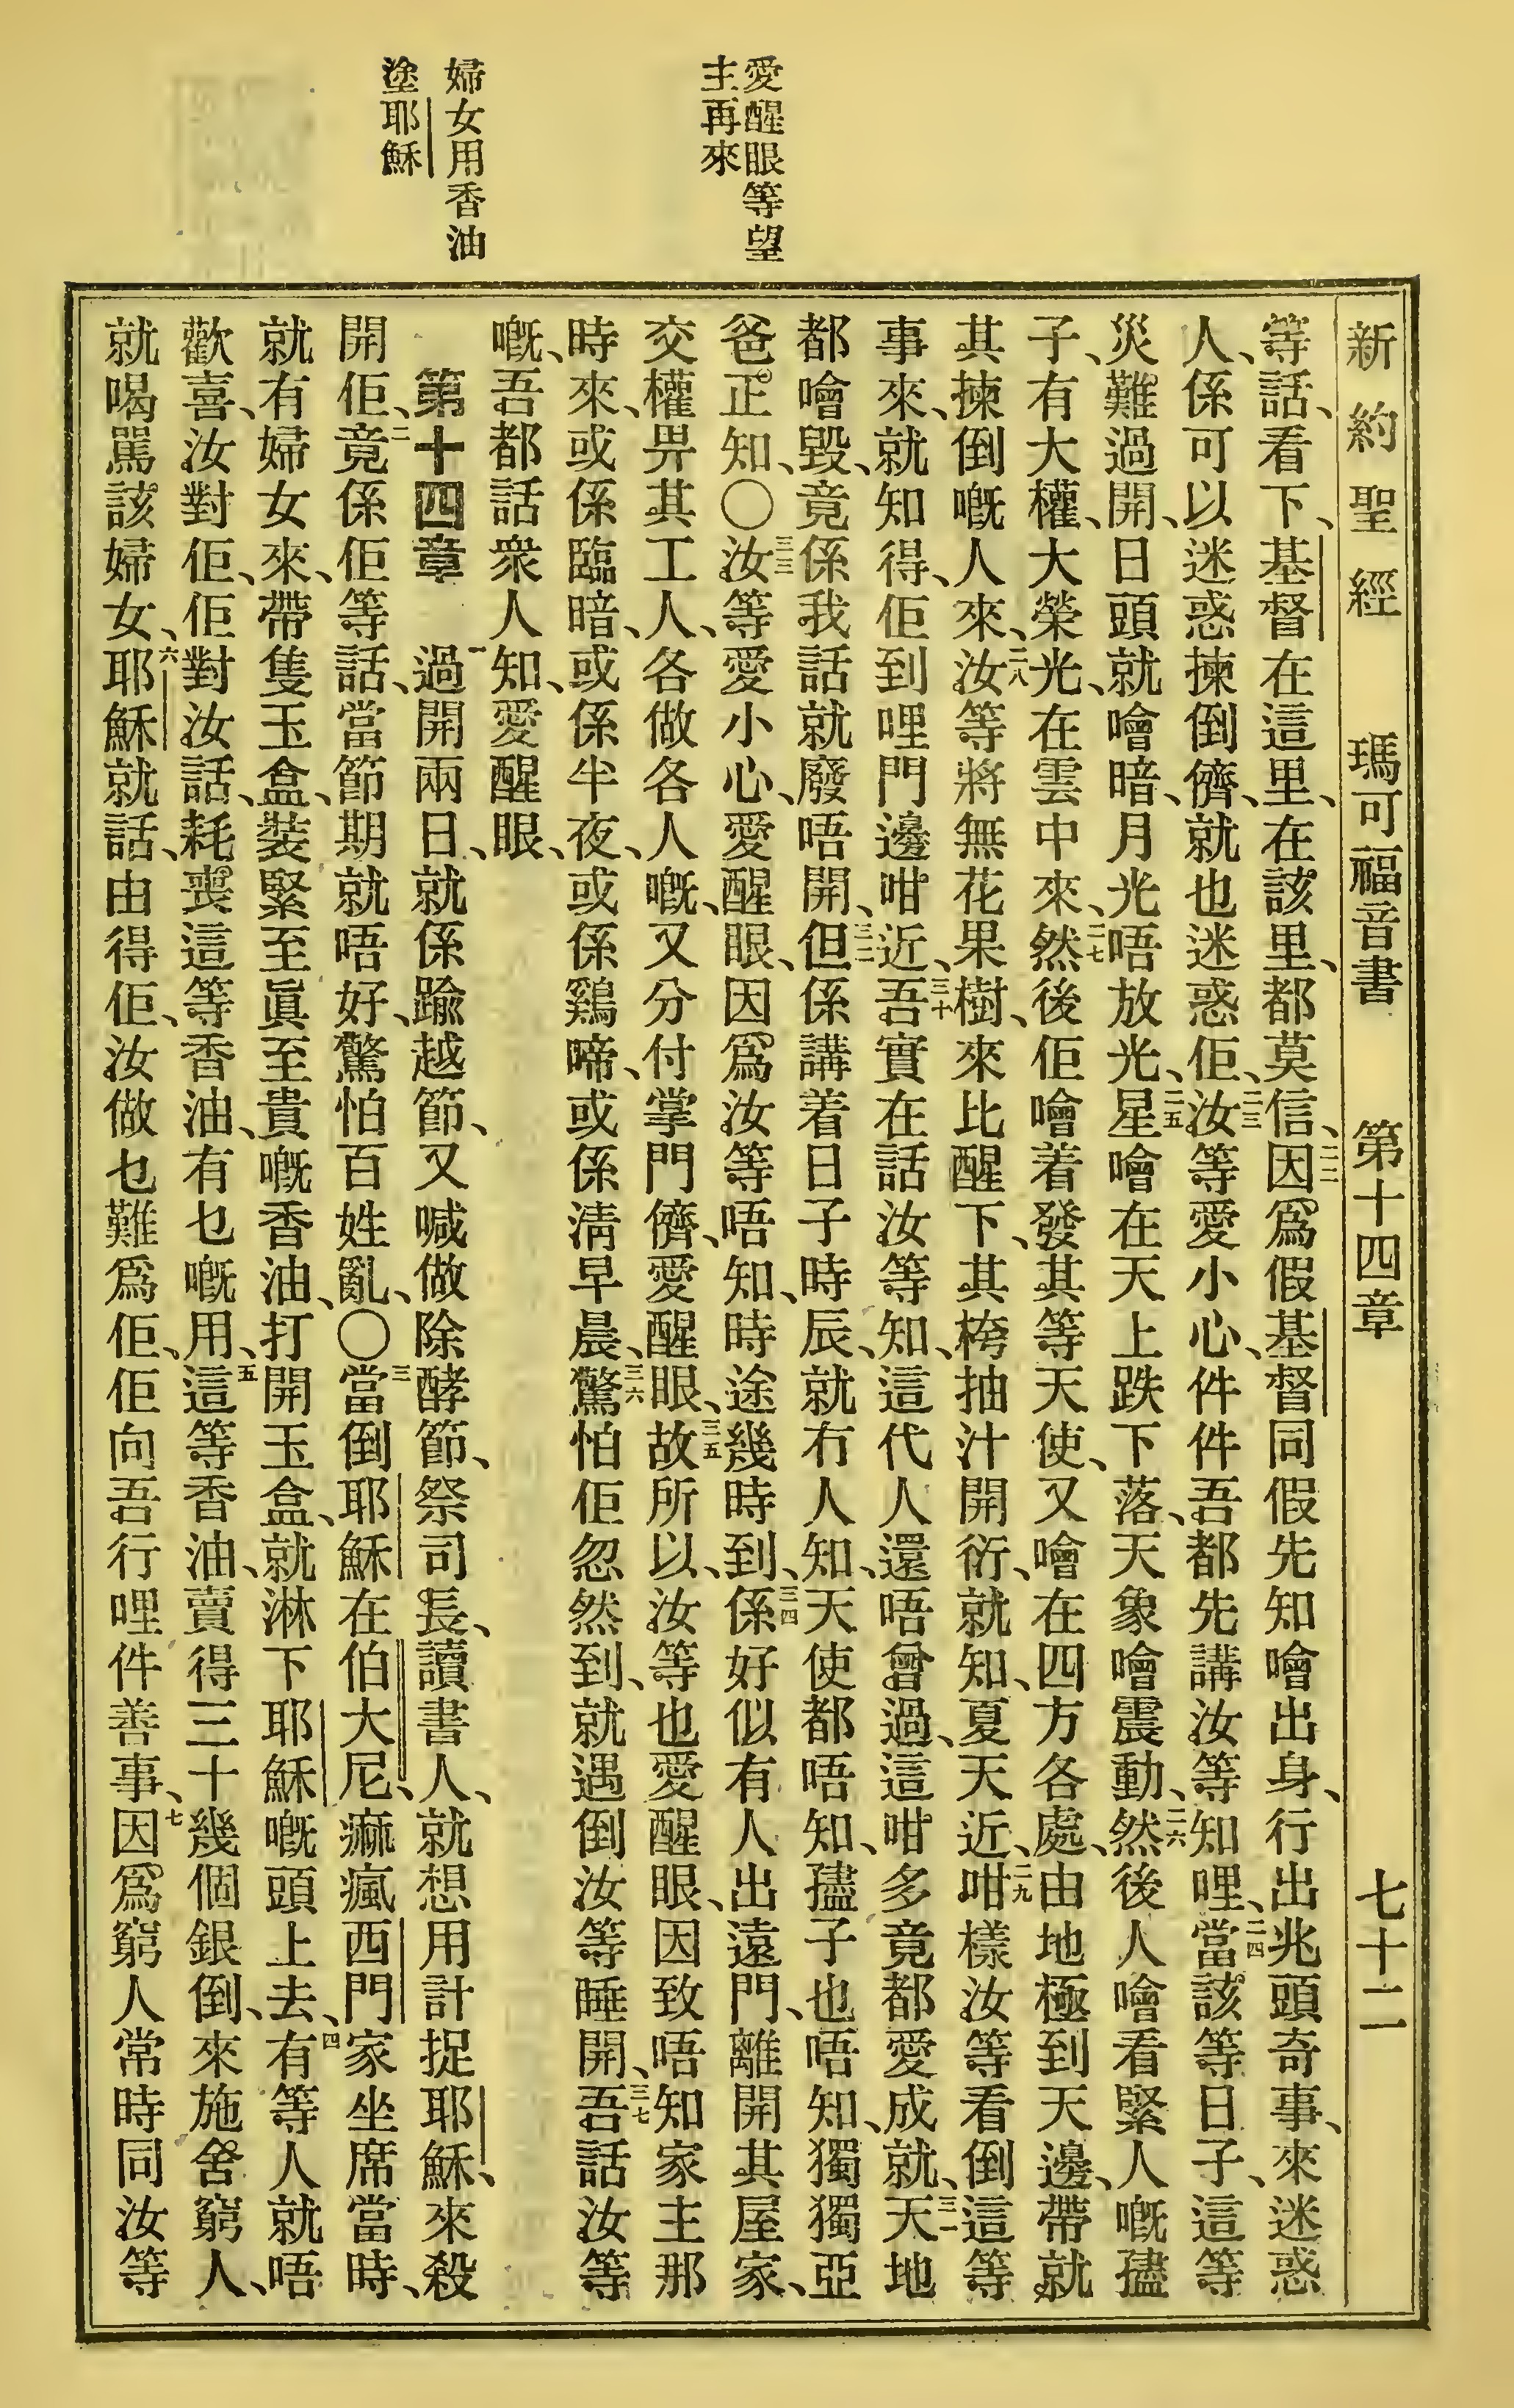 愛醒眼等望
主再來
婦女用香油
塗耶穌
新約聖經 瑪可福音書 第十四章 七十二
等話、看下、基督在這里、在該里、都莫信、二二因爲假基督同假先知噲出身、行出兆頭奇事、來迷惑
人、係可以迷惑揀倒儕、就也迷惑佢、二三汝等愛小心、件件吾都先講汝等知哩、二四當該等日子、這等
災難過開、日頭就噲暗、月光唔放光、二五星噲在天上跌下落、天象噲震動、二六然後人噲看緊人嘅孻
子、有大權、大榮光、在雲中來、二七然後佢噲着發其等天使、又噲在四方各處、由地極到天邊、帶就
其揀倒嘅人來、二八汝等將無花果樹、來比醒下、其桍抽汁開衍、就知、夏天近、二九咁樣汝等看倒這等
事來、就知得、佢到哩門邊咁近、三十吾實在話汝等知、這代人還唔曾過、這咁多竟都愛成就、三一天地
都噲毀、竟係我話就廢唔開、三二但係講着日子時辰、就冇人知、天使都唔知、孻子也唔知、獨獨亞
爸正知、〇三三汝等愛小心、愛醒眼、因爲汝等唔知、時途幾時到、三四係好似有人出遠門、離開其屋家、
交權畀其工人、各做各人嘅、又分付掌門儕、愛醒眼、三五故所以、汝等也愛醒眼、因致唔知家主那
時來、或係臨暗、或係半夜、或係鷄啼、或係淸早晨、三六驚怕佢忽然到、就遇倒汝等睡開、三七吾話汝等
嘅、吾都話衆人知、愛醒眼、
第十四章 一過開兩日、就係踰越節、又喊做除酵節、祭司長、讀書人、就想用計捉耶穌、來殺
開佢、二竟係佢等話、當節期就唔好、驚怕百姓亂、〇三當倒耶穌在伯大尼、痲瘋西門家坐席當時、
就有婦女來、帶隻玉盒、裝緊至眞至貴嘅香油、打開玉盒、就淋下耶穌嘅頭上去、四有等人就唔
歡喜、汝對佢、佢對汝話、耗喪這等香油、有乜嘅用、五這等香油、賣得三十幾個銀倒、來施舍窮人、
就喝駡該婦女、六耶穌就話、由得佢、汝做乜難爲佢、佢向吾行哩件善事、七因爲窮人常時同汝等